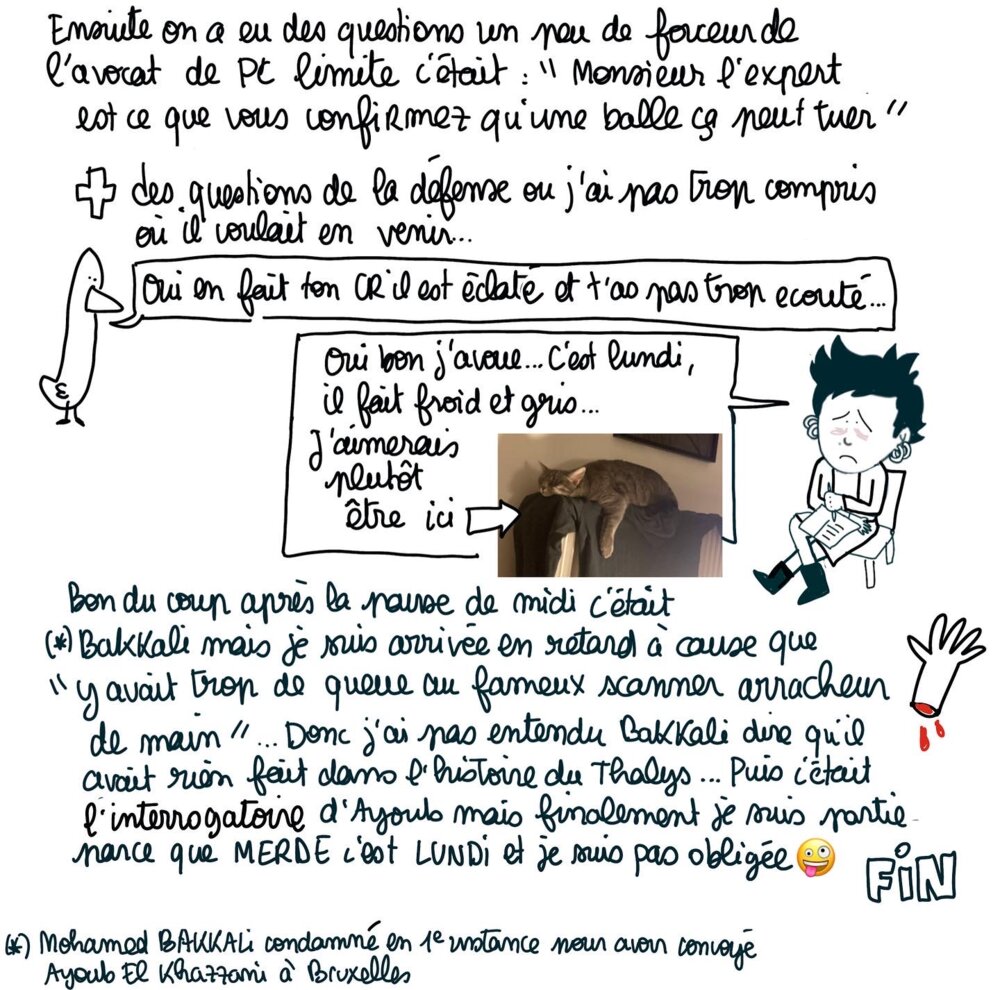 Ensuite on a eu des questions un peu de forceur de
l'avocat de PC limite c'était : " Monsieur l'expert
est ce que vous confirmez qu'une balle ça peut tuer "
+ des questions de la défense ou j'ai pas trop compris
où il voulait en venir...
Oui en fait ton CR il est éclaté et t'as pas trop ecouté...
Oui bon j'avoue... C'est lundi,
il fait froid et gris...
J'aimerais
plutôt
être ici
Bon du coup après la pause de midi c'était
(*) Bakkali mais je suis arrivée en retard à cause que
"y avait trop de queue au fameux scanner arracheur
de main"... Donc j'ai pas entendu Bakkali dire qu'il
avait rien fait dans l'histoire du Thalys... Puis c'était
l'interrogatoire d'Ayoub mais finalement je suis partie
parce que MERDE c'est LUNDI et je suis pas obligée🤪
FiN
(*) Mohamed BAKKALi condamné en 1e instance pour avoir convoyé
Ayoub El Khazzani à Bruxelles